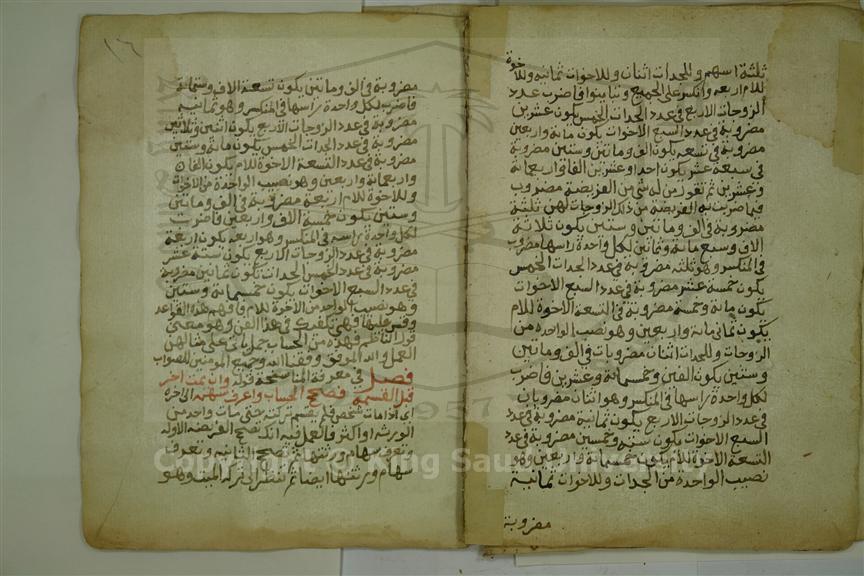 ثلثة اسهم وللجدات اثنان وللاخوات ثمانيه وللاخوة
للام اربعه وانكسر على الجميع وتباينوا فاضرب عدد
الزوجات الاربع في عدد الجدات الخمس يكون عشرين
مضروبة في عدد السبع الاخوات يكون مائة واربعين
مضروبة في تسعه يكون الف ومائتين وستين مضروبة
في سبعة عشر يكون احد وعشرين الفا واربعمائة
وعشرين ثم تقول من له شي من الفريضة مضروب
فيما ضربت به الفريضة من ذلك الزوجات لهن ثلثة
مضروبة في الف ومائتين وستين يكون ثلاثة
الاف وسبع مائة وثمانين لكل واحدة راسها مضروب
في المنكسر وهو ثلثه مضروبة في عدد الجدات الخمس
يكون خمسة عشر مضروبة في عدد السبع الاخوات
يكون مائة وخمسة مضروبة في التسعة الاخوة للام
يكون تسعمائة واربعين وهو نصيب الواحده من
الزوجات وللجدات اثنان مضروبات في الف ومائتين
وستين يكون الفين وخمسمائة وعشرين فاضرب
لكل واحدة راسها في المنكسر وهو اثنان مضروبان
في عدد الزوجات الاربع يكون ثمانية مضروبة في عدد
السبع الاخوات يكون ستة وخمسين مضروبة في عدد
التسعة الاخوة للام يكون خمسمائة واربعين وهو
نصيب الواحدة من الجدات وللاخوات ثمانية
مضروبة
١٦
مضروبة في الف ومائتين يكون تسعة الاف وستمائة
فاضرب لكل واحدة راسها في المنكسر وهو ثمانيه
مضروبة في عدد الزوجات الاربع يكون اثنين وثلاثين
مضروبة في عدد الجدات الخمس يكون مائة وستين
مضروبة في عدد التسعة الاخوة للام يكون الفان
واربعمائة واربعين وهو نصيب الواحدة من الاخوات
وللاخوة للام اربعة مضروبة في الف ومائتين
وستين يكون خمسة الاف واربعين فاضرب
لكل واحدة راسه في المنكسر وهو اربعه يكون اربعة
مضروبة في عدد الزوجات الاربع يكون ستة عشر
مضروبة في عدد الخمس الجدات يكون ثمانين مضروبة
في عدد السبع الاخوات يكون خمسمائة وستين
وهو نصيب الواحد من الاخوة للام فافهم هذه القواعد
وقس عليها فهي تكفيك في هذا الفن وهو معنى
قول الناظم فهذه من الحساب جمل ياتي على مثالهن
العمل والله الموفق وفقنا الله وجميع المومنين للصواب
فصل في معرفة المناسخة قوله وان يمت اخر
قبل القسمة فصحح الحساب واعرف سهمه الى اخره
اي اذا مات شخص فلم يقسم تركته حتى مات واحد من
الورثه او اكثر فالعمل فيه انك تصحح الفريضه الاوله
وتعرف سهام ورثتها ثم تصحح الثانيه وتعرف
سهام ورثتها ايضا ثم تنظر الى تركه الميت وهو
Copyright © King Saud University
1957